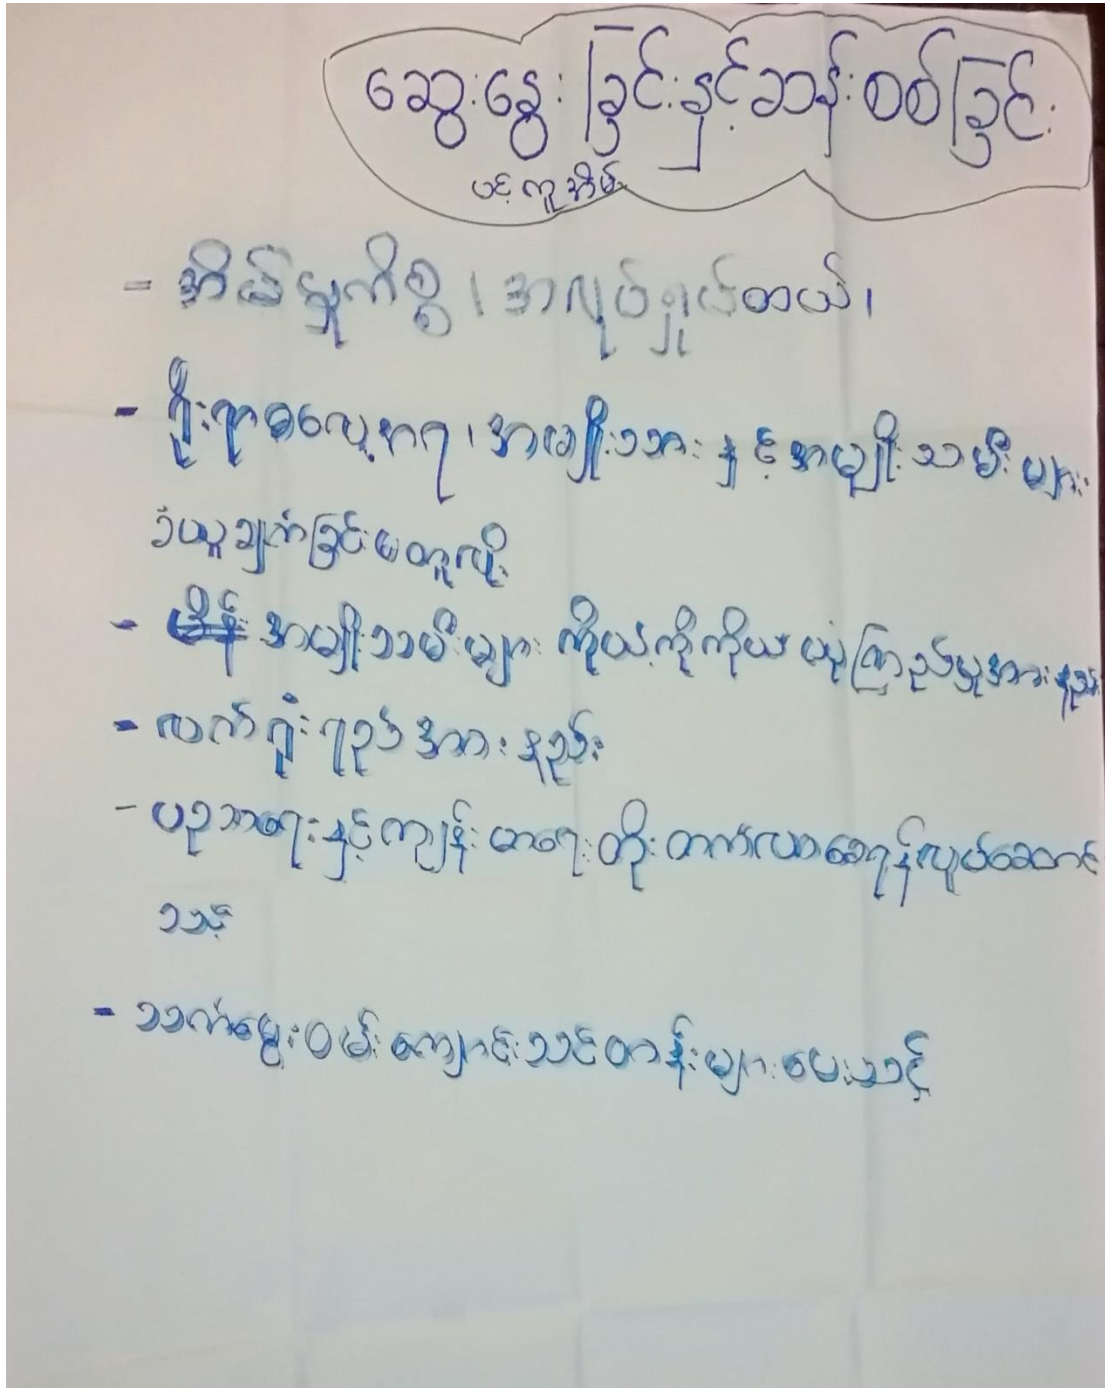 ဆွေးနွေးခြင်းနှင့်ဆန်းစစ်ခြင်း
ပင့်ကူအိမ်
- အိမ်မှုကိစ္စ၊ အလုပ်ရှုပ်တယ်၊
- ရိုးရာဓလေ့အရ၊ အမျိုးသားနှင့်အမျိုးသမီးများ
ခံယူချက်ခြင်းမတူလို့
- အမျိုးသမီးများ ကိုယ့်ကိုကိုယ်ယုံကြည်မှုအားနည်း
- လက်ရုံးရည်အားနည်း
- ပညာရေးနှင့်ကျန်းမာရေးတိုးတက်လာစေရန်လုပ်ဆောင်
သင့်
- သက်မွေးဝမ်းကျောင်းသင်တန်းများပေးသင့်